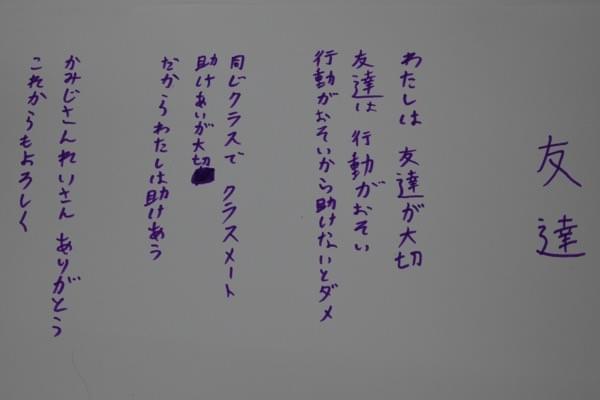 友達
わたしは 友達が大切
友達は 行動がおそい
行動がおそいから助けないとダメ
同じクラスで クラスメート
助けあいが大切
だからわたしは助けあう
かみじさんれいさん ありがとう
これからもよろしく